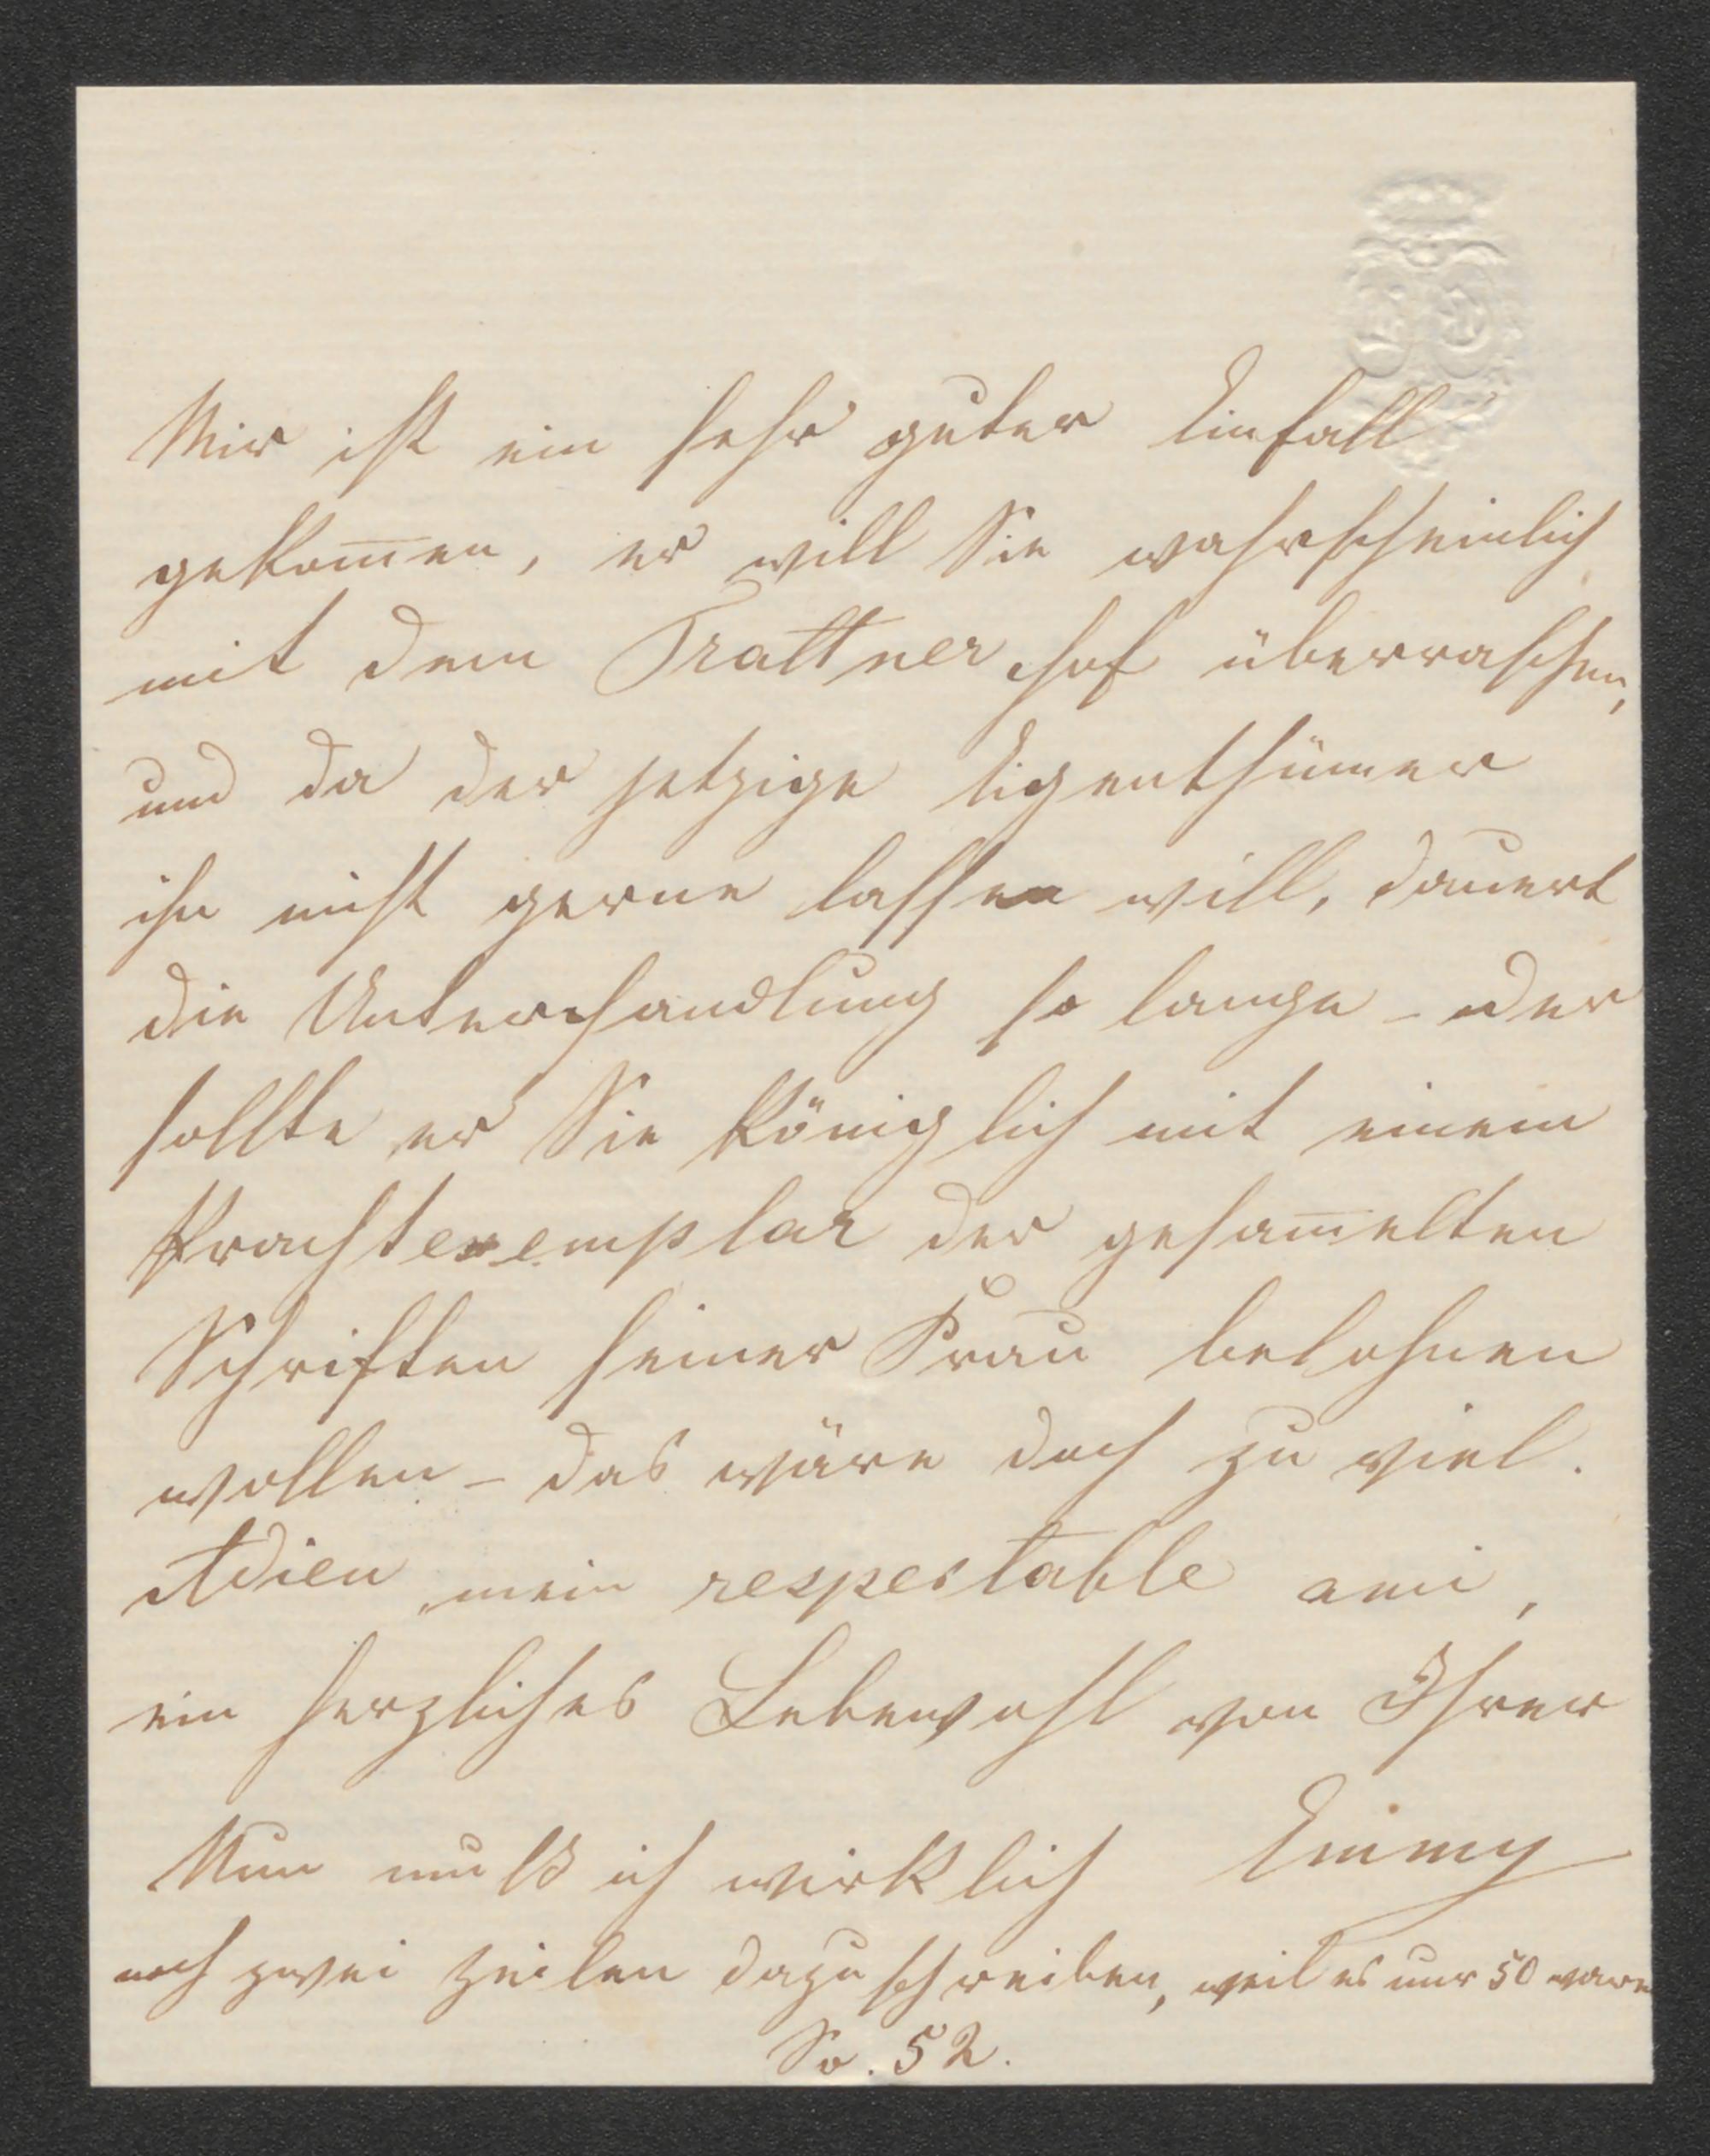 Mir ist ein sehr guter Einfall
gekom̅en, er will Sie wahrscheinlich
mit dem Trattnerhof überraschen,
und da der jetzige Eigenthümer
ihn nicht gerne lassen will, dauert
die Unterhandlung so lange – oder
sollte er Sie königlich mit einem
Prachtexemplar der gesam̅elten
Schriften seiner Frau belohnen
wollen – das wäre doch zu viel.
Adieu mein respectable ami,
ein herzliches Lebewohl von Ihrer
Emmy
Nun muß ich wirklich
noch zwei Zeilen dazu schreiben, weil es nur 50 waren
So. 52.